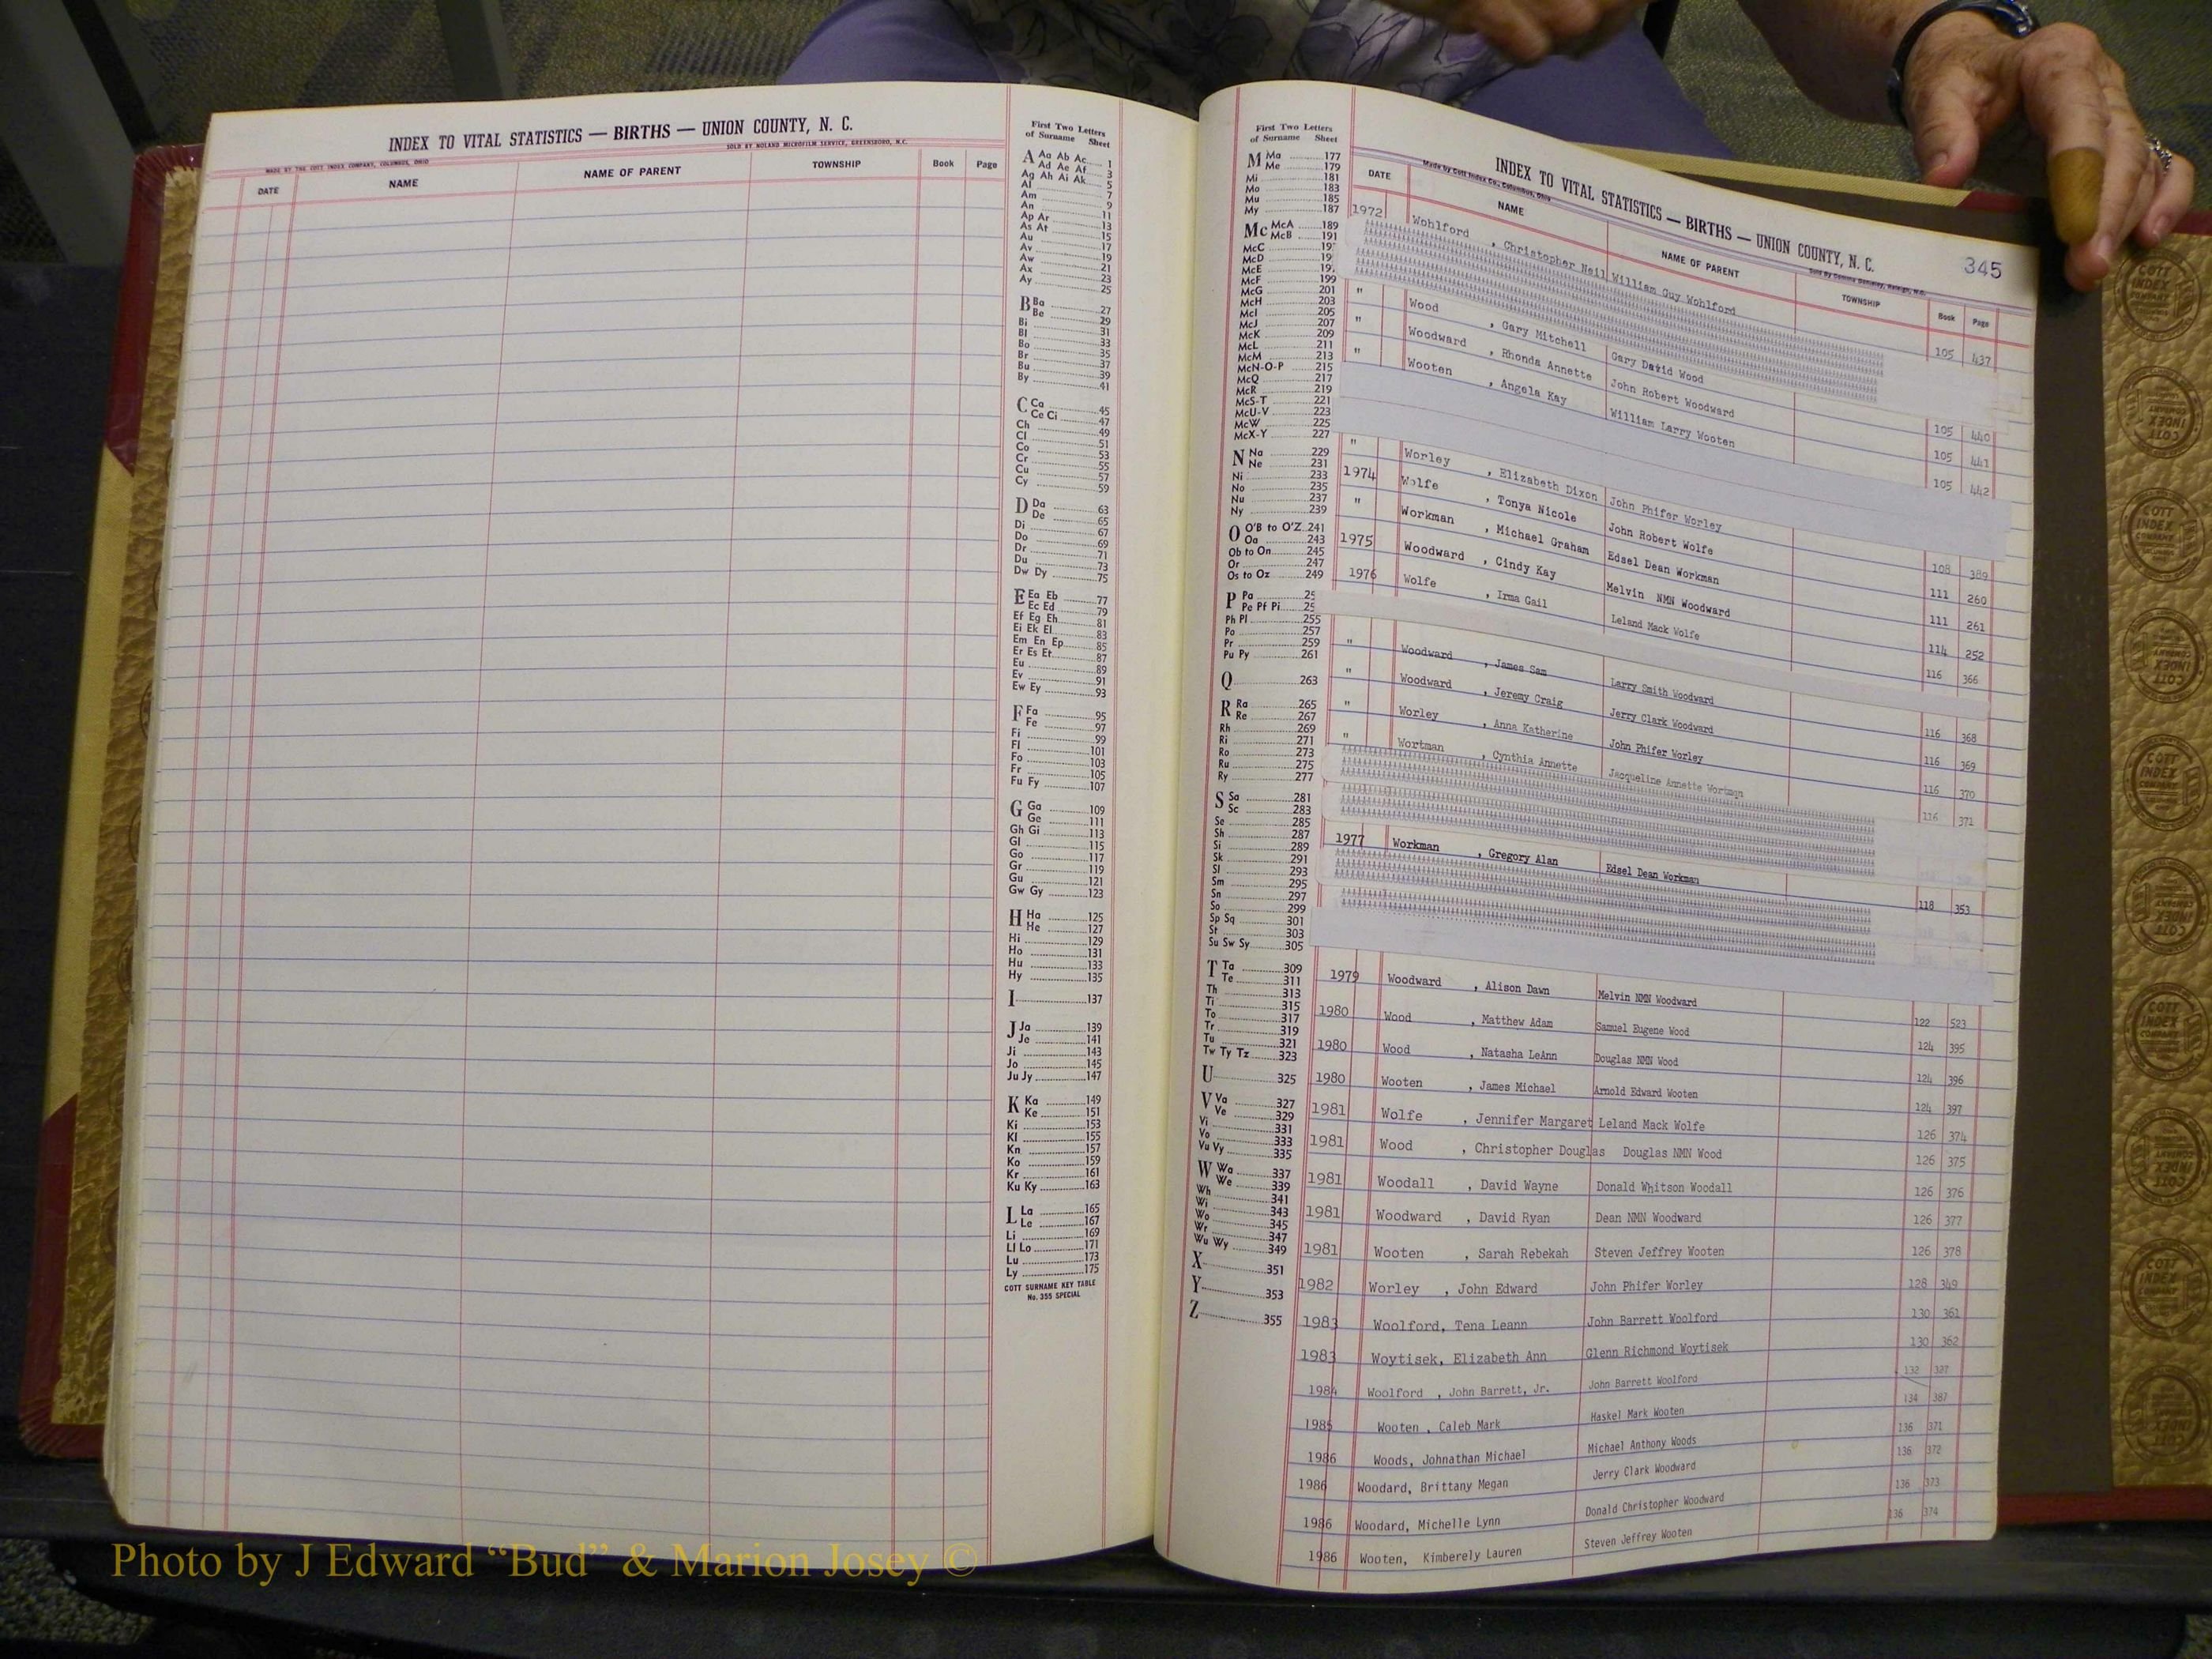 INDEX TO VITAL STATISTICS — BIRTHS — UNION COUNTY, N. C.
MADE BY THE COTT INDEX COMPANY, COLUMBUS, OHIO
SOLD BY NOLAND MICROFILM SERVICE, GREENSBORO, N.C.
DATE NAME NAME OF PARENT TOWNSHIP Book Page
First Two Letters
of Surname Sheet
A Aa Ab Ac 1
Ad Ae Af 3
Ag Ah Ai Ak 5
Al 7
Am 9
An 11
Ap Ar 13
As At 15
Au 17
Av 19
Aw 21
Ax 23
Ay 25
B Ba 27
Be 29
Bi 31
Bl 33
Bo 35
Br 37
Bu 39
By 41
C Ca 45
Ce Ci 47
Ch 49
Cl 51
Co 53
Cr 55
Cu 57
Cy 59
D Da 63
De 65
Di 67
Do 69
Dr 71
Du 73
Dw Dy 75
E Ea Eb 77
Ec Ed 79
Ef Eg Eh 81
Ei Ek El 83
Em En Ep 85
Er Es Et 87
Eu 89
Ev 91
Ew Ey 93
F Fa 95
Fe 97
Fi 99
Fl 101
Fo 103
Fr 105
Fu Fy 107
G Ga 109
Ge 111
Gh Gi 113
Gl 115
Go 117
Gr 119
Gu 121
Gw Gy 123
H Ha 125
He 127
Hi 129
Ho 131
Hu 133
Hy 135
I 137
J Ja 139
Je 141
Ji 143
Jo 145
Ju Jy 147
K Ka 149
Ke 151
Ki 153
Kl 155
Kn 157
Ko 159
Kr 161
Ku Ky 163
L La 165
Le 167
Li 169
Ll Lo 171
Lu 173
Ly 175
COTT SURNAME KEY TABLE
No. 355 SPECIAL
First Two Letters
of Surname Sheet
M Ma 177
Me 179
Mi 181
Mo 183
Mu 185
My 187
Mc McA 189
McB 191
McC
McD
McE
McF 199
McG 201
McH 203
McI 205
McJ 207
McK 209
McL 211
McM 213
McN-O-P 215
McQ 217
McR 219
McS-T 221
McU-V 223
McW 225
McX-Y 227
N Na 229
Ne 231
Ni 233
No 235
Nu 237
Ny 239
O O'B to O'Z 241
Oa 243
Ob to On 245
Or 247
Os to Oz 249
P Pa
Pe Pf Pi
Ph Pl 255
Po 257
Pr 259
Pu Py 261
Q 263
R Ra 265
Re 267
Rh 269
Ri 271
Ro 273
Ru 275
Ry 277
S Sa 281
Sc 283
Se 285
Sh 287
Si 289
Sk 291
Sl 293
Sm 295
Sn 297
So 299
Sp Sq 301
St 303
Su Sw Sy 305
T Ta 309
Te 311
Th 313
Ti 315
To 317
Tr 319
Tu 321
Tw Ty Tz 323
U 325
V Va 327
Ve 329
Vi 331
Vo 333
Vu Vy 335
W Wa 337
We 339
Wh 341
Wi 343
Wo 345
Wr 347
Wu Wy 349
X 351
Y 353
Z 355
INDEX TO VITAL STATISTICS — BIRTHS — UNION COUNTY, N. C. 345
Made by Cott Index Co., Columbus, Ohio
DATE NAME NAME OF PARENT TOWNSHIP Book Page
1972 Wohlford , Christopher Neil William Guy Wohlford 105 437
" Wood , Gary Mitchell Gary David Wood 105 440
" Woodward , Rhonda Annette John Robert Woodward 105 441
" Wooten , Angela Kay William Larry Wooten 105 442
" Worley , Elizabeth Dixon John Phifer Worley 108 389
1974 Wolfe , Tonya Nicole John Robert Wolfe 111 260
" Workman , Michael Graham Edsel Dean Workman 111 261
1975 Woodward , Cindy Kay Melvin NMN Woodward 114 252
1976 Wolfe , Irma Gail Leland Mack Wolfe 116 366
" Woodward , James Sam Larry Smith Woodward 116 368
" Woodward , Jeremy Craig Jerry Clark Woodward 116 369
" Worley , Anna Katherine John Phifer Worley 116 370
" Wortman , Cynthia Annette Jacqueline Annette Wortman 116 371
1977 Workman , Gregory Alan Edsel Dean Workman 118 353
1979 Woodward , Alison Dawn Melvin NMN Woodward 122 523
1980 Wood , Matthew Adam Samuel Eugene Wood 124 395
1980 Wood , Natasha LeAnn Douglas NMN Wood 124 396
1980 Wooten , James Michael Arnold Edward Wooten 124 397
1981 Wolfe , Jennifer Margaret Leland Mack Wolfe 126 374
1981 Wood , Christopher Douglas Douglas NMN Wood 126 375
1981 Woodall , David Wayne Donald Whitson Woodall 126 376
1981 Woodward , David Ryan Dean NMN Woodward 126 377
1981 Wooten , Sarah Rebekah Steven Jeffrey Wooten 126 378
1982 Worley , John Edward John Phifer Worley 128 349
1983 Woolford, Tena Leann John Barrett Woolford 130 361
1983 Woytisek, Elizabeth Ann Glenn Richmond Woytisek 130 362
1984 Woolford , John Barrett, Jr. John Barrett Woolford 132 327
1985 Wooten , Caleb Mark Haskel Mark Wooten 134 387
1986 Woods, Johnathan Michael Michael Anthony Woods 136 371
1986 Woodard, Brittany Megan Jerry Clark Woodward 136 372
1986 Woodard, Michelle Lynn Donald Christopher Woodward 136 373
1986 Wooten, Kimberely Lauren Steven Jeffrey Wooten 136 374
Photo by J Edward “Bud” & Marion Josey ©